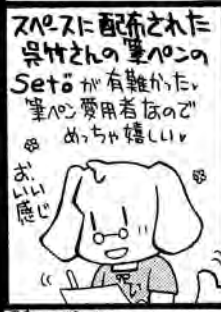 スペースに配布された
呉竹さんの筆ペンの
Setが有難かった。
筆ペン愛用者なので
めっちゃ嬉しい♥
お、
いい
感じ